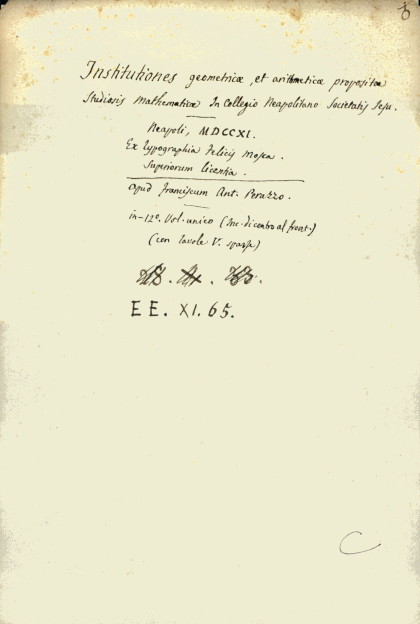 Institutiones geometricæ, et arithmeticæ propositæ
Studiosis Mathematicæ In Collegio Neapolitano Societatis Jesu.
Neapoli, MDCCXI.
Ex typographia Felicis Mosca.
Superiorum licentia.
Apud Franciscum Ant. Perazzo.
in-12º. Vol. unico (Inc. di contro al front.)
(con tavole V. sparse)
EE. XI. 65.
C